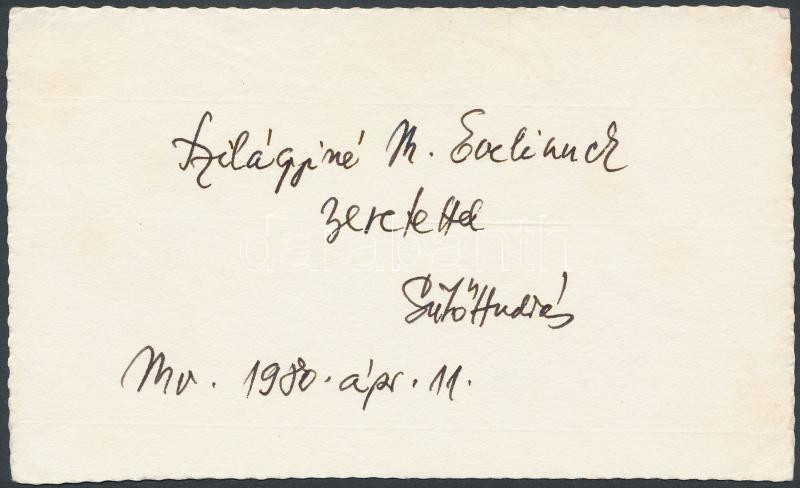 Szilágyiné M. Evelinnek
szeretettel
Sütő András
Mv. 1980. ápr. 11.
darabanth